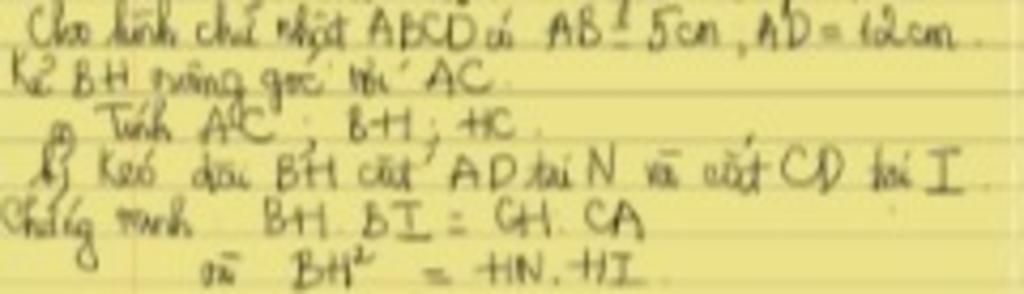 Cho hình chữ nhật ABCD có AB = 5cm, AD = 12cm.
Kẻ BH vuông góc với AC
a) Tính AC ; BH ; HC.
b) Kéo dài BH cắt AD tại N và cắt CD tại I.
Chứng minh BH. BI = CH. CA
và BH² = HN. HI.